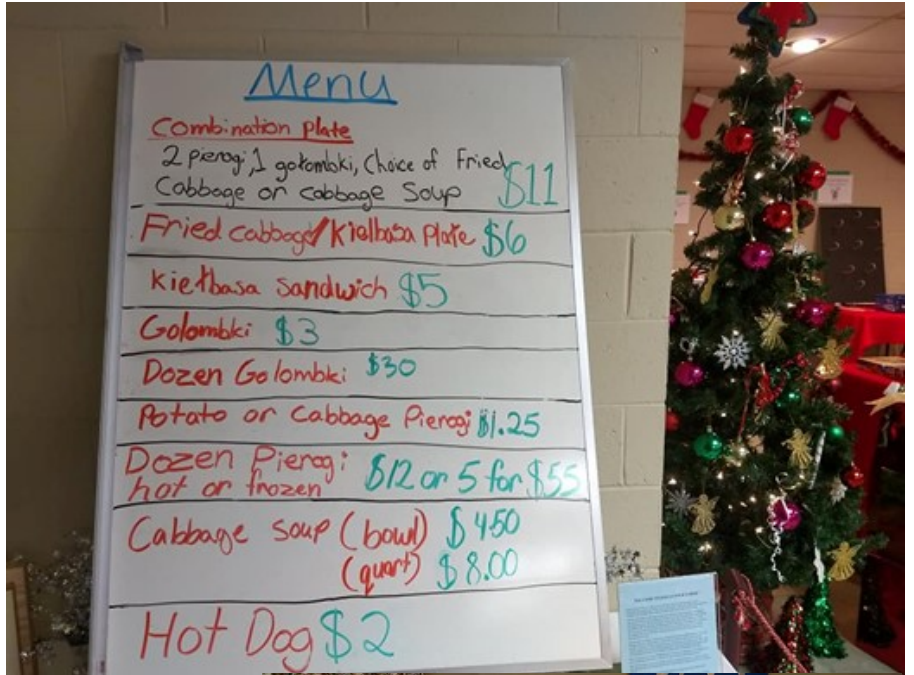 Menu
Combination Plate
2 pierogi, 1 gołombki, Choice of Fried
Cabbage or cabbage Soup $11
Fried cabbage/Kielbasa Plate $6
Kiełbasa Sandwich $5
Golombki $3
Dozen Golombki $30
Potato or Cabbage Pierogi $1.25
Dozen Pierogi
hot or frozen $12 or 5 for $55
Cabbage soup (bowl) $450
(quart) $8.00
Hot Dog $2